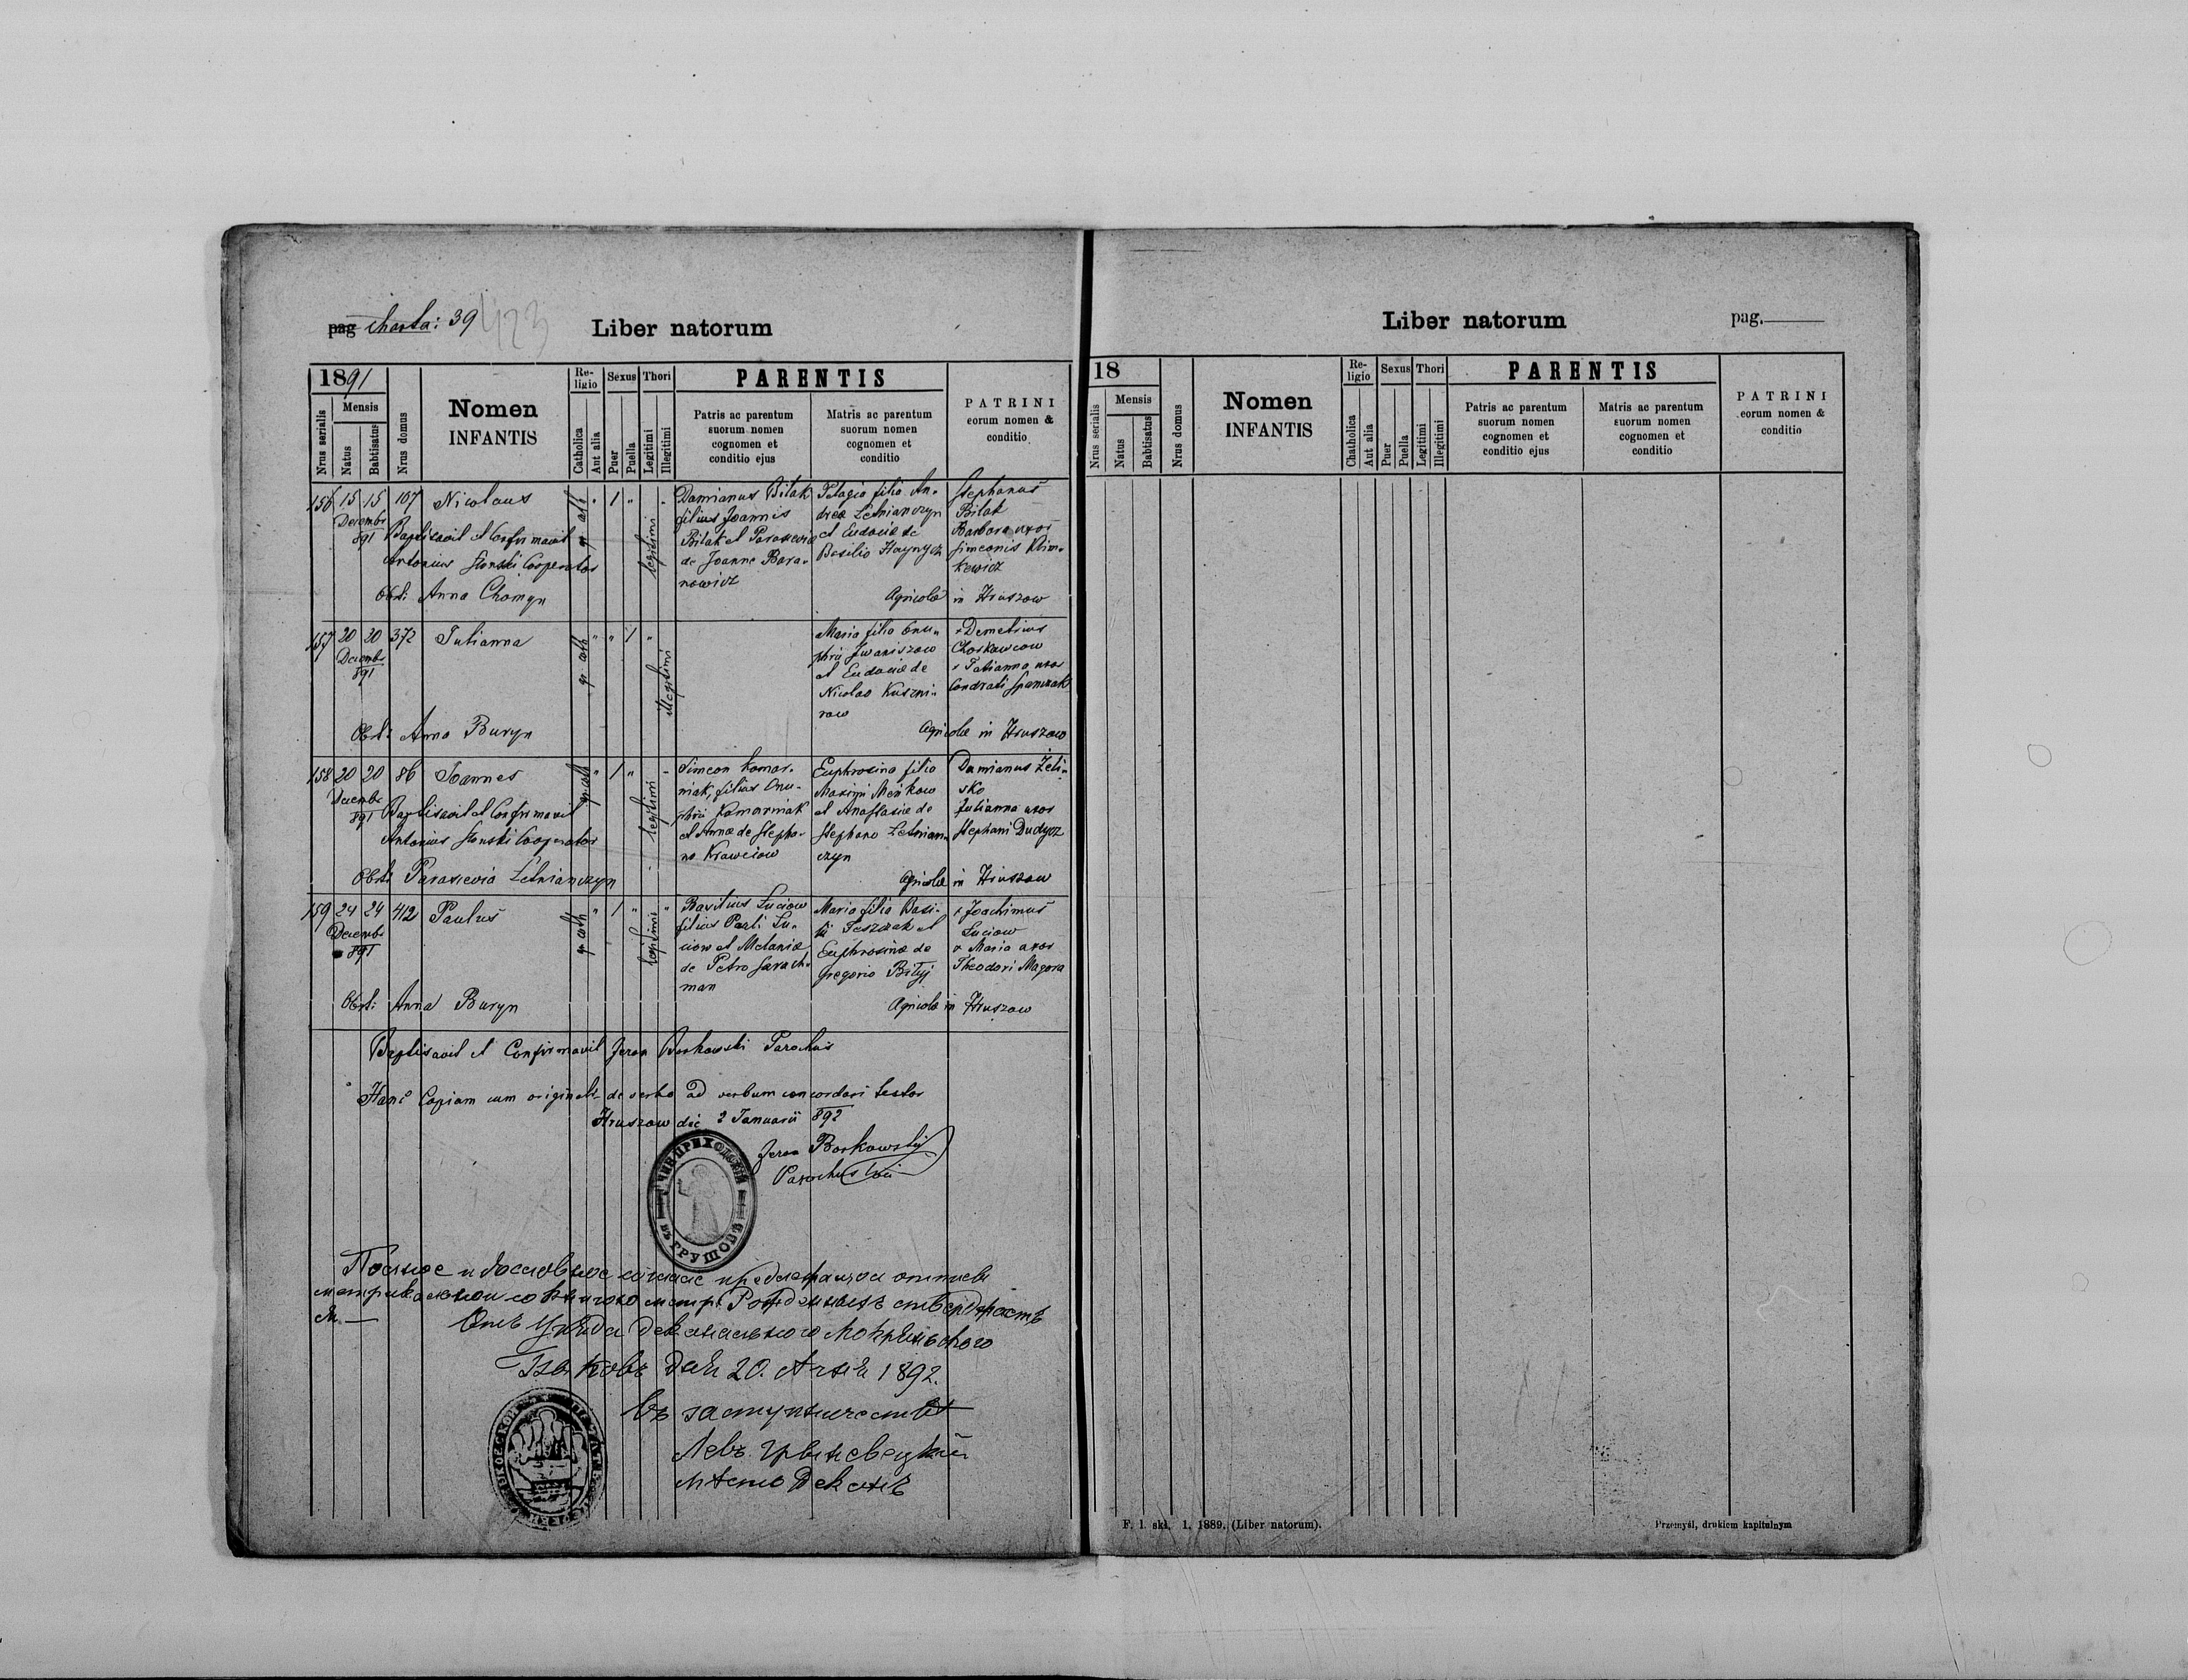 pag charta: 39
423
Liber natorum
1891
Mensis
Nrus serialis
Natus
Babtisatus
Nrus domus
Nomen
INFANTIS
Re-
ligio
Catholica
Aut alia
Sexus
Puer
Puella
Thori
Legitimi
Illegitimi
PARENTIS
Patris ac parentum
suorum nomen
cognomen et
conditio ejus
Matris ac parentum
suorum nomen
cognomen et
conditio
PATRINI
eorum nomen &
conditio
156 15 15 107 Nicolaus
Decembr
891
gr. cath
1
legitimi
Baptisavit et Confirmavit
Antonius Cooperator
Obst: Anna Chomyn
Damianus Bilak
filius Joannis
Bilak et Parascevia
de Joanne Bara-
nowicz
Pelagia filia An-
dreæ Letnianczyn
et Eudociæ de
Basilio Haynycz
Stephanus
Bilak
Barbara uxor
Simeonis Klim-
kewicz
Agricolæ in Hruszow
157 20 20 372 Julianna
Decembr
891
gr. cath
1
illegitimi
Obst: Anna Buryn
Maria filia Onu-
phrii Iwaniszow
et Eudociæ de
Nicolao Kuszni-
row
+ Demetrius
+ Tatianna uxor
Condrati
Agricolæ in Hruszow
158 20 20 86 Joannes
Decembr
891
gr. cath
1
legitimi
Baptisavit et Confirmavit
Antonius Cooperator
Obst: Parascevia Letnianczyn
Simeon Komar-
niak, filius Onu-
phrii Komarniak
et Annæ de Stepha-
no Krawciow
Euphrosina filia
Maximi Meńkow
et Anastasiæ de
Stephano Letnian-
czyn
Damianus Żeli-
sko
Julianna uxor
Stephani Dudycz
Agricolæ in Hruszow
159 24 24 412 Paulus
Decembr
891
gr. cath
1
legitimi
Obst: Anna Buryn
Basilius Luciow
filius Pauli Lu-
ciow et Melaniæ
de Petro Harach-
man
Maria filia Basi-
lii Teszczak et
Euphrosinæ de
Gregorio Bilyj
+ Joachimus
Luciow
+ Maria uxor
Theodori Magora
Agricolæ in Hruszow
Baptisavit et Confirmavit Jeron Borkowski Parochus
Hanc Copiam cum originali de verbo ad verbum concordari testor
Hruszow die 2 Januarii 892
Jeron Borkowskyj
Parochus loci
ПРИХОДСКІЙ
ГРУШОВѢ
Полное и дословное согласіе
Рожденныхъ
Отъ Уряда Деканального Мокрянского
дня 20. 1892.
Въ заступничествѣ
Левъ
Деканъ
Liber natorum
pag.
18
Mensis
Nrus serialis
Natus
Babtisatus
Nrus domus
Nomen
INFANTIS
Re-
ligio
Chatholica
Aut alia
Sexus
Puer
Puella
Thori
Legitimi
Illegitimi
PARENTIS
Patris ac parentum
suorum nomen
cognomen et
conditio ejus
Matris ac parentum
suorum nomen
cognomen et
conditio
PATRINI
eorum nomen &
conditio
F. l. skł. 1. 1889. (Liber natorum).
Przemyśl, drukiem kapitulnym